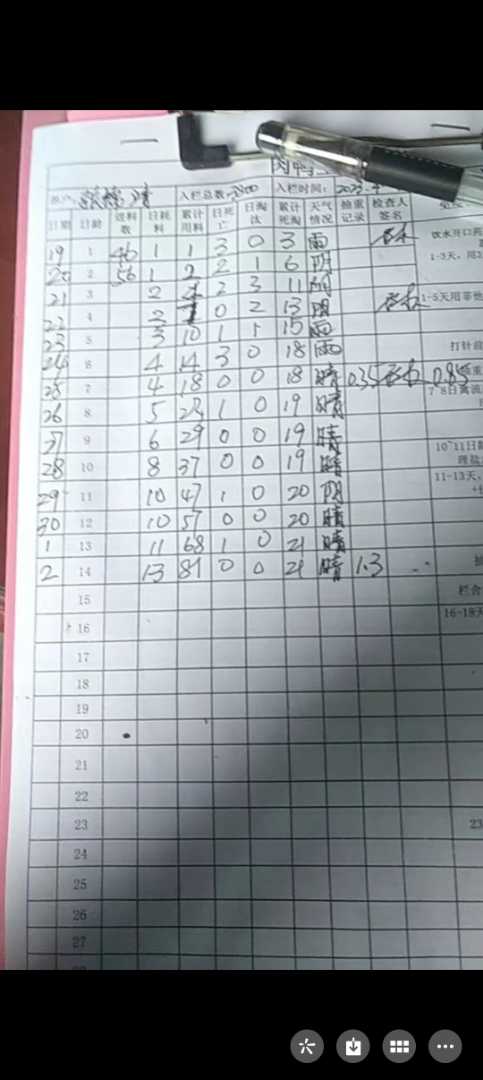 肉鸭
入栏总数: 入栏时间: 2023.4
日期 日龄 进料数 日耗料 累计用料 日死亡 日淘汰 累计死淘 天气情况 抽重记录 检查人签名
饮水开口药
19 1 46 1 1 3 0 3 雨
1-3天,用
20 2 56 1 2 2 1 6 阴
21 3 2 4 2 3 11 阴
1-5天用
22 4 2 7 0 2 13 阴
23 5 3 10 1 1 15 雨
打针前
24 6 4 14 3 0 18 雨
25 7 4 18 0 0 18 晴 0.35 0.85
7-8日禽流
26 8 5 23 1 0 19 晴
27 9 6 29 0 0 19 晴
10-11日
28 10 8 37 0 0 19 晴
理盐
11-13天,
29 11 10 47 1 0 20 阴
30 12 10 57 0 0 20 晴
1 13 11 68 1 0 21 晴
2 14 13 81 0 0 21 晴 1.3
15
栏舍
16 16-18天
17
18
19
20
21
22
23 23
24
25
26
27